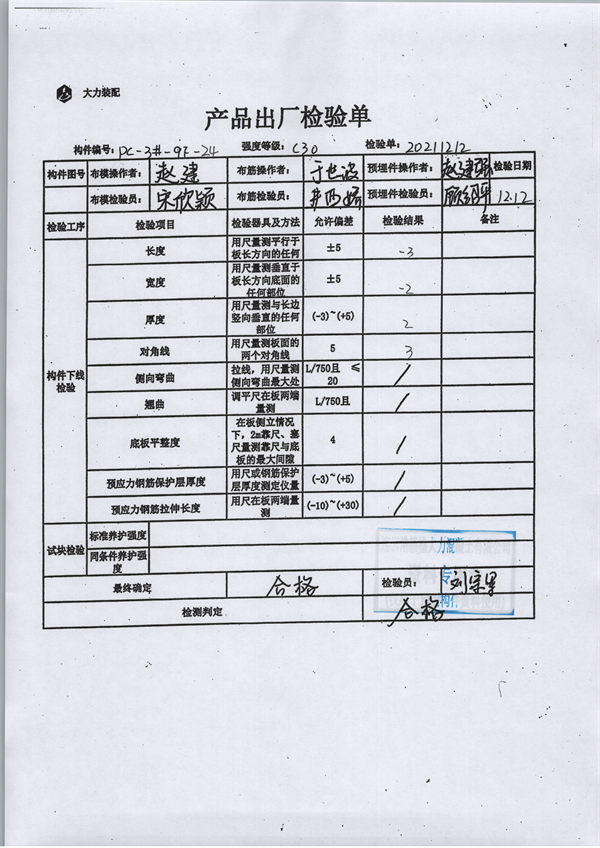 大力装配
产品出厂检验单
构件编号: PC-3#-9F-24 强度等级: C30 检验单: 20211212
构件图号 布模操作者: 赵建 布筋操作者: 于世波 预埋件操作者: 赵建强 检验日期
布模检验员: 宋欣颖 布筋检验员: 预埋件检验员: 12.12
检验工序 检验项目 检验器具及方法 允许偏差 检验结果 备注
构件下线检验
长度 用尺量测平行于板长方向的任何 ±5 -3
宽度 用尺量测垂直于板长方向底面的任何部位 ±5 -2
厚度 用尺量测与长边竖向垂直的任何部位 (-3)~(+5) 2
对角线 用尺量测板面的两个对角线 5 3
侧向弯曲 拉线，用尺量测侧向弯曲最大处 L/750且 ≤20 /
翘曲 调平尺在板两端量测 L/750且 /
底板平整度 在板侧立情况下，2m靠尺、塞尺量测靠尺与底板的最大间隙 4 /
预应力钢筋保护层厚度 用尺或钢筋保护层厚度测定仪量 (-3)~(+5) /
预应力钢筋拉伸长度 用尺在板两端量测 (-10)~(+30) /
试块检验 标准养护强度
同条件养护强度
最终确定 合格 检验员:
检测判定 合格